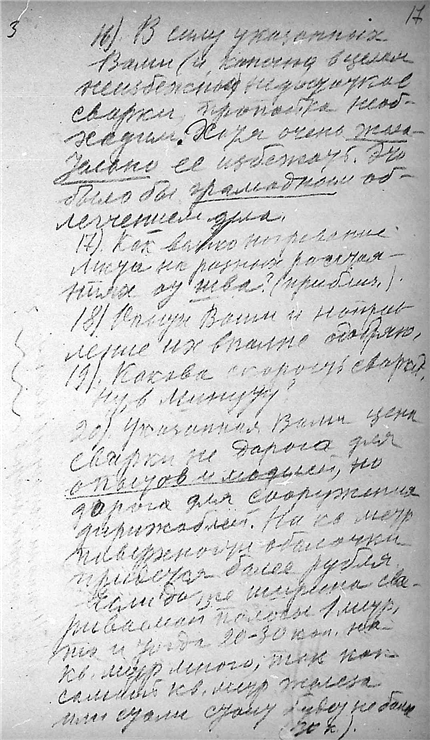 3 17
16). В силу указанных
Вами (и конечно в целом
неизбежной) недостатков
сварки, пропайка необ-
ходима. Хотя очень жела-
тельно ее избежать. Это
было бы громадным об-
легчением дела.
17). Как велико нагревание
листа на разных расстоя-
ниях от шва? (приблиз.).
18). Опыты Ваши и направ-
ление их вполне одобряю.
19). Какова скорость сварки
в минуту?
20). Указанная Вами цена
сварки не дорога для
опытов и моделей, но
дорога для сооружения
дирижаблей. На кв. метр
поверхности оболочки
придется более рубля
Если бы же ширина сва-
риваемой полосы 1 метр,
то и тогда 20-30 коп. на
кв. метр много, так как
самый кв. метр железа
или стали стоит не более
(30 к).